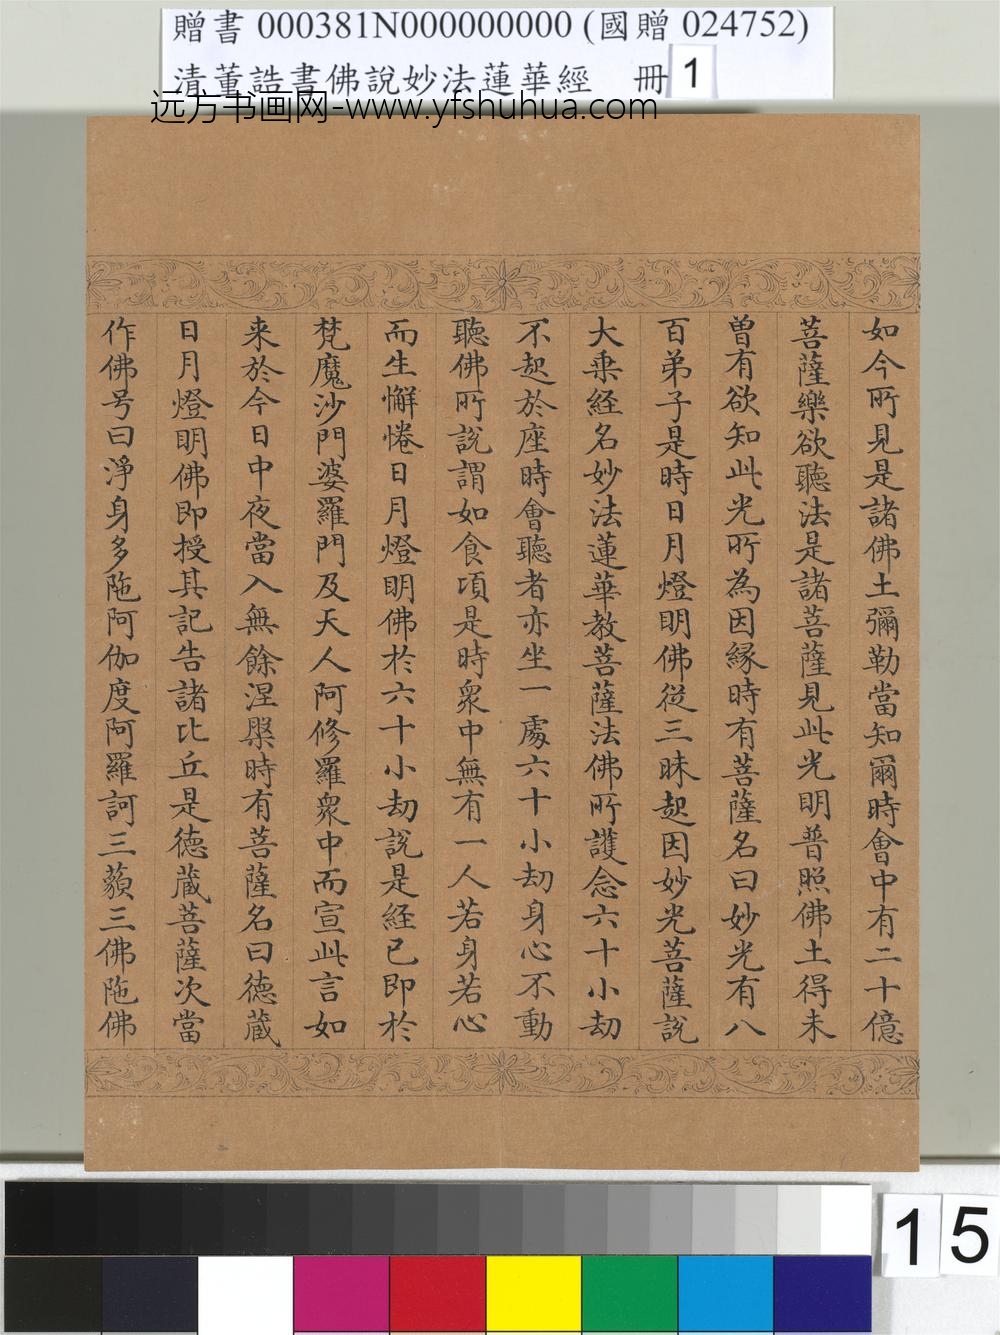 贈書 000381N000000000 (國贈 024752)
清董誥書佛說妙法蓮華經 冊 1
远方书画网-www.yfshuhua.com
如今所見是諸佛土彌勒當知爾時會中有二十億
菩薩樂欲聽法是諸菩薩見此光明普照佛土得未
曾有欲知此光所為因緣時有菩薩名曰妙光有八
百弟子是時日月燈明佛從三昧起因妙光菩薩說
大乗經名妙法蓮華教菩薩法佛所護念六十小劫
不起於座時會聽者亦坐一處六十小劫身心不動
聽佛所說謂如食項是時衆中無有一人若身若心
而生懈惓日月燈明佛於六十小劫說是經已即於
梵魔沙門婆羅門及天人阿修羅衆中而宣此言如
来於今日中夜當入無餘涅槃時有菩薩名曰德蔵
日月燈明佛即授其記告諸比丘是德蔵菩薩次當
作佛号曰淨身多陁阿伽度阿羅訶三藐三佛陁佛
15